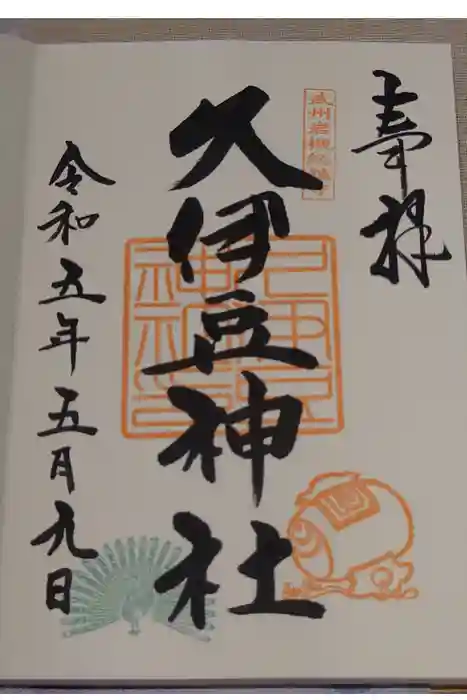 奉拝
武州岩槻総鎮守
久伊豆神社
令和五年五月九日